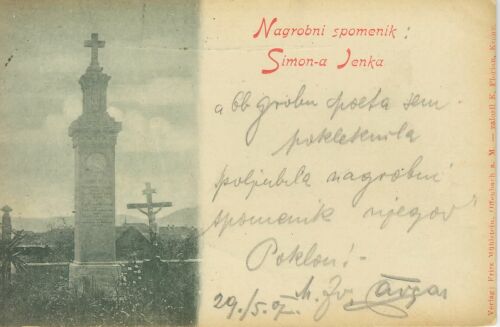 Nagrobni spomenik :
Simon-a Jenka
a ob grobu poeta sem
pokleknila
poljubila nagrobni
spomenik njegov
Poklon! -
29./5. 07.
Verlag: Fritz Mühlstein, Offenbach a. M. — založil K. Florian, Kranj